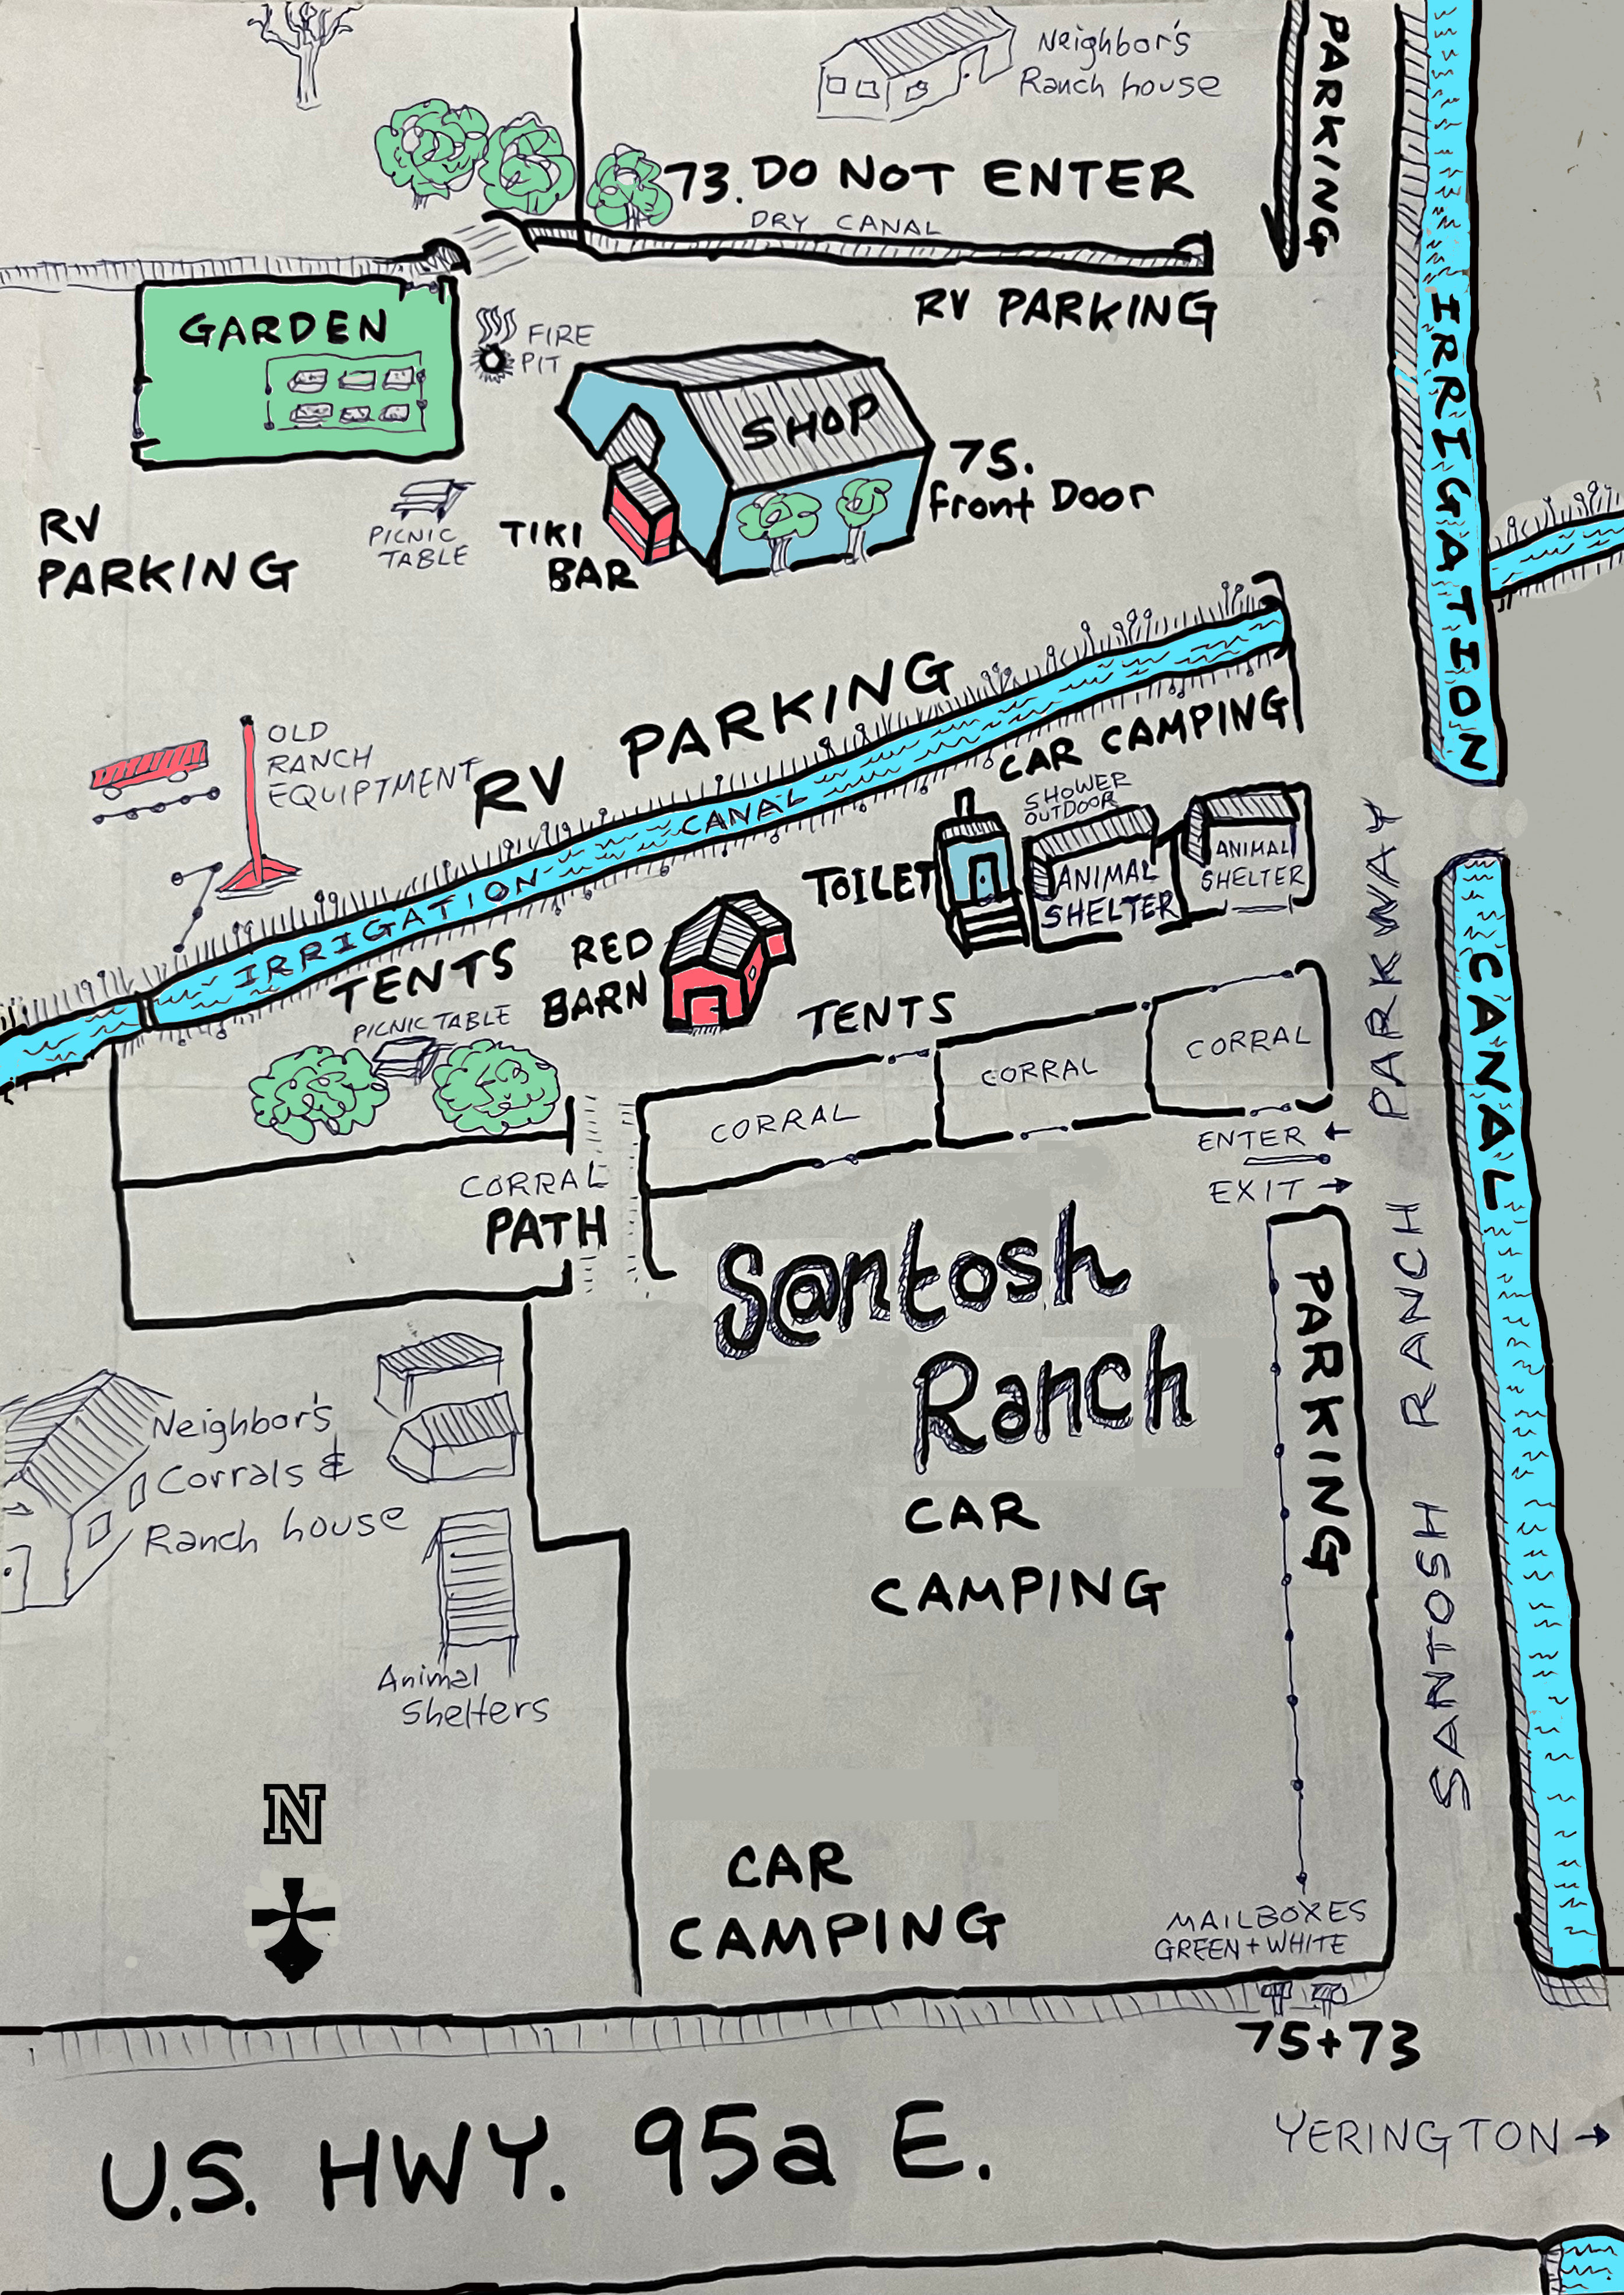 Neighbor's
Ranch house
PARKING
73. DO NOT ENTER
DRY CANAL
RV PARKING
GARDEN
FIRE
PIT
SHOP
75.
Front Door
RV
PARKING
PICNIC
TABLE
TIKI
BAR
IRRIGATION
CANAL
OLD
RANCH
EQUIPTMENT
RV PARKING
CAR CAMPING
IRRIGATION CANAL
SHOWER
OUTDOOR
TOILET
ANIMAL
SHELTER
ANIMAL
SHELTER
TENTS
RED
BARN
TENTS
PICNIC TABLE
CORRAL
CORRAL
CORRAL
ENTER ←
EXIT →
CORRAL
PATH
S@ntosh
Ranch
PARKING
SANTOSH RANCH PARKWAY
Neighbor's
Corrals &
Ranch house
Animal
Shelters
CAR
CAMPING
N
CAR
CAMPING
MAILBOXES
GREEN + WHITE
75+73
U.S. HWY. 95a E.
YERINGTON →